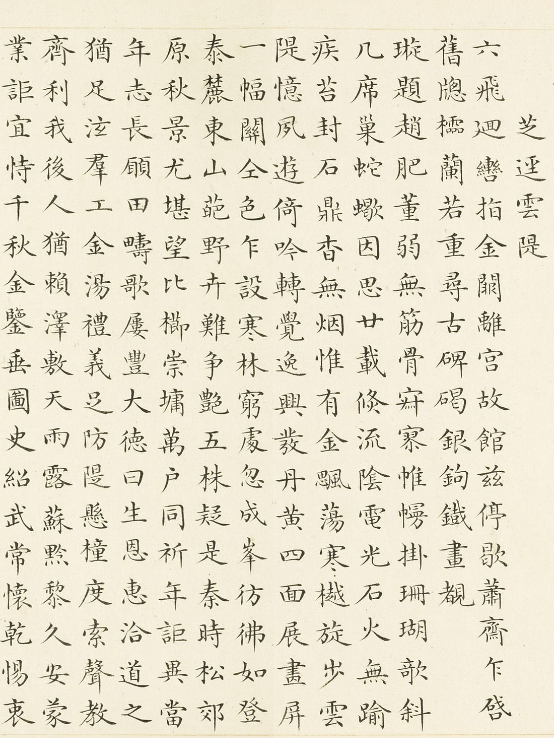 芝逕雲隄
六飛廻轡指金闕離宮故館茲停歇蕭齋乍啓
舊牕櫺蘭若重尋古碑碣銀鉤鐵畫覩
璇題趙肥董弱無筋骨寂寥帷幔掛珊瑚歌斜
几席巢蛇蠍因思廿載倏流陰電光石火無踰
疾苔封石鼎杳無烟惟有金飈蕩寒樾旋步雲
隄憶夙遊倚吟轉覺逸興發丹黄四面展畫屏
一幅關仝色乍設寒林窮處忽成峯彷彿如登
泰麓東山葩野卉難争艷五株疑是秦時松郊
原秋景尤堪望比櫛崇墉萬户同祈年詎異當
年志長願田疇歌屢豐大德曰生恩惠洽道之
猶足泣羣工金湯禮義足防隄懸橦度索聲教
齊利我後人猶賴澤敷天雨露蘇黔黎久安蒙
業詎宜恃千秋金鑒垂圖史紹武常懷乾惕衷